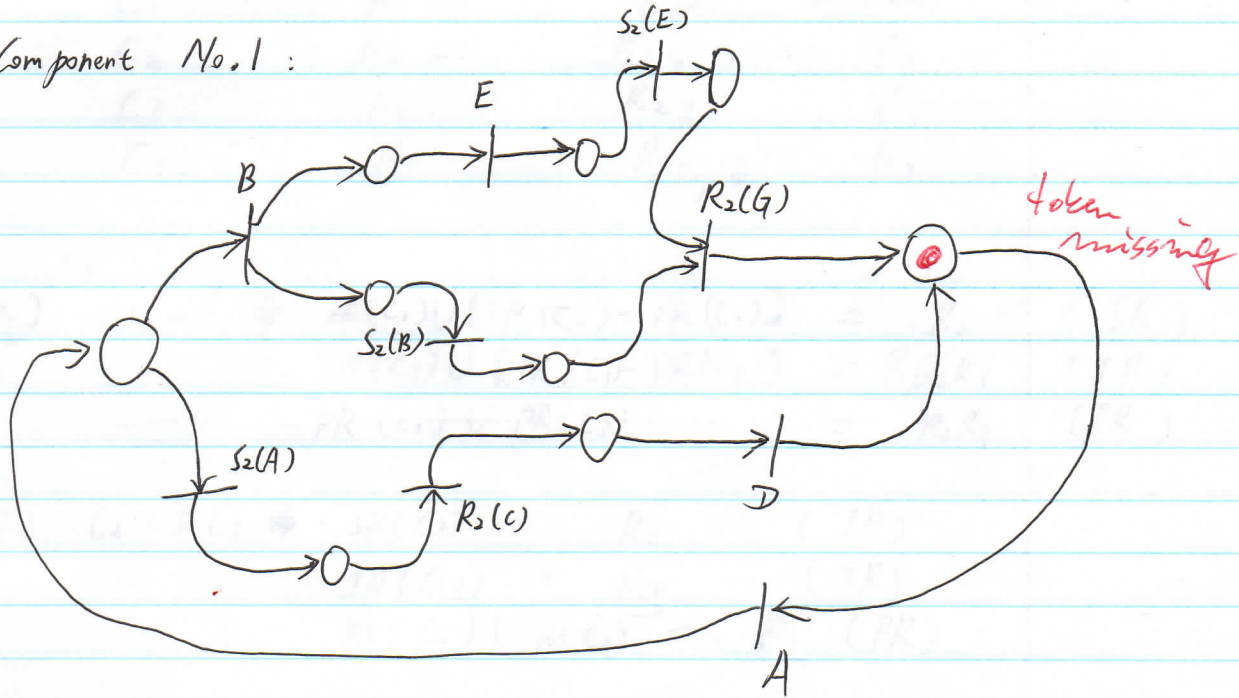 Component No.1 :
S₂(E)
E
B
R₂(G)
token
missing
S₂(B)
S₂(A)
R₂(C)
D
A